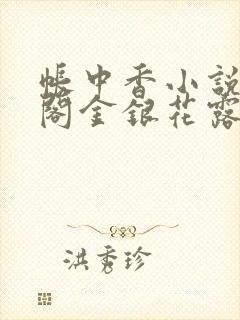 帳中香小說
閣金銀花露
洪秀珍